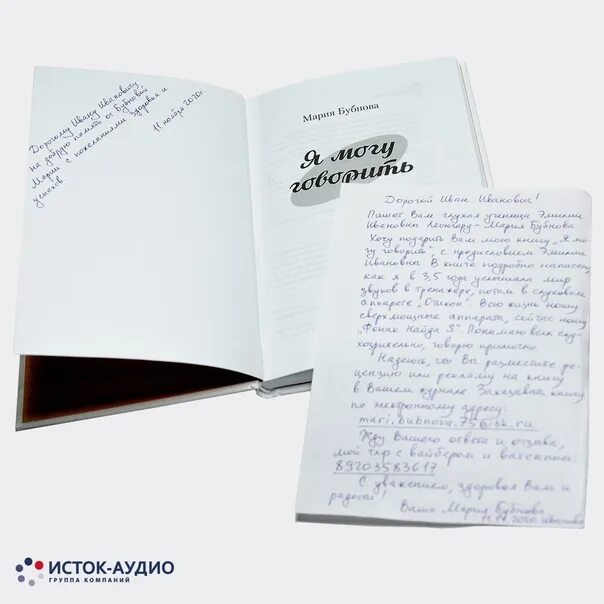 Дорогому Ивану Ивановичу
на добрую память от Бубновой
Марии с пожеланиями здоровья и
успехов
11 ноября 2020г
Мария Бубнова
Я могу
говорить
Дорогой Иван Иванович!
Пишет Вам глухая ученица Эмилии
Ивановны Леонгард - Мария Бубнова
Хочу подарить Вам мою книгу "Я мо-
гу говорить", с предисловием Эмилии
Ивановны. В книге подробно написано,
как я в 3,5 года услышала мир
звуков в тренажёре, потом в слуховом
аппарате "Отикон". Всю жизнь ношу
сверхмощные аппараты, сейчас ношу
"Фонак Найда S" Понимаю всех слу-
хозрительно, говорю прилично.
Надеюсь, что Вы разместите ре-
цензию или рекламу на книгу
в Вашем журнале. Заказывать книгу
по электронному адресу:
mari.bubnova.75@bk.ru
Жду Вашего ответа и отзыва,
мой тлф с вайбером и ватсапом:
89203583617
С уважением, здоровья Вам и
радости!
Ваша Мария Бубнова
11.11.2020
ИСТОК-АУДИО
ГРУППА КОМПАНИЙ